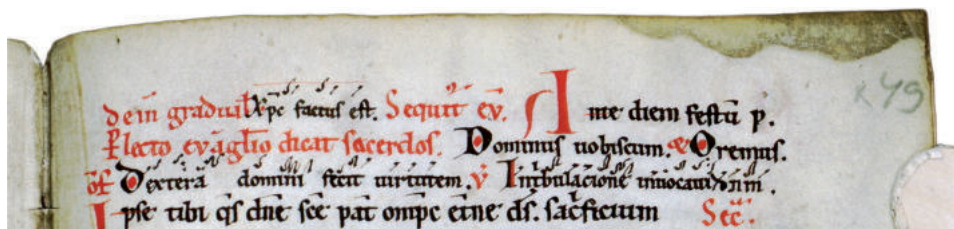 dein gradual̅ Xp̅c factus est. Sequit᷑ ev̅. Ante diem festū p.
P̱lecto ev̅aglio dicat sacerdos. Dominus uobiscum. & Oremus.
of̅ Dexterā domini fecit uirtutem. v̅ In tribulacione inuocaui dn̅m.
Ipse tibi qs̅ dn̅e sc̅e pat̅ omp̅c et̅ne ds̅. sac̅ficium Sec̅.
79